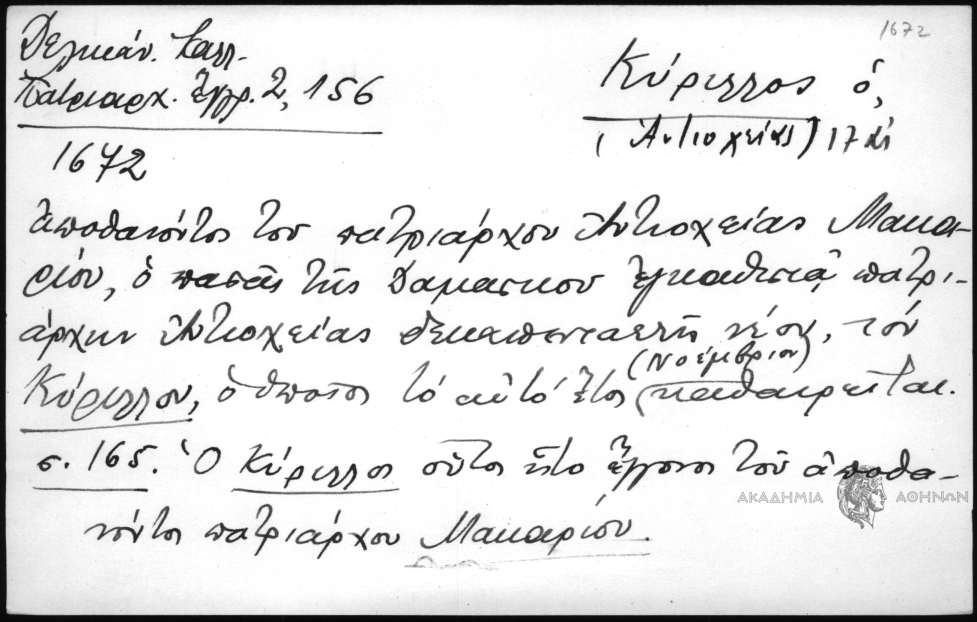 1672
Δελικάν. Καλλ.
Πατριαρχ. Ἔγγρ. 2, 156
Κύριλλος ὁ,
(Ἀντιοχείας) 17 αἰ
1672
Ἀποθανόντος τοῦ πατριάρχου Ἀντιοχείας Μακα-
ρίου, ὁ πασᾶς τῆς Δαμασκοῦ ἐγκαθιστᾷ πατρι-
άρχην Ἀντιοχείας δεκαπενταετῆ νέον, τὸν
Κύριλλον, ὁ ὁποῖος τὸ αὐτὸ ἔτος (Νοέμβριον) καθαιρεῖται.
σ. 165. Ὁ Κύριλλος οὗτος ἦτο ἔγγονος τοῦ ἀποθα-
νόντος πατριάρχου Μακαρίου.
ΑΚΑΔΗΜΙΑ ΑΘΗΝΩΝ